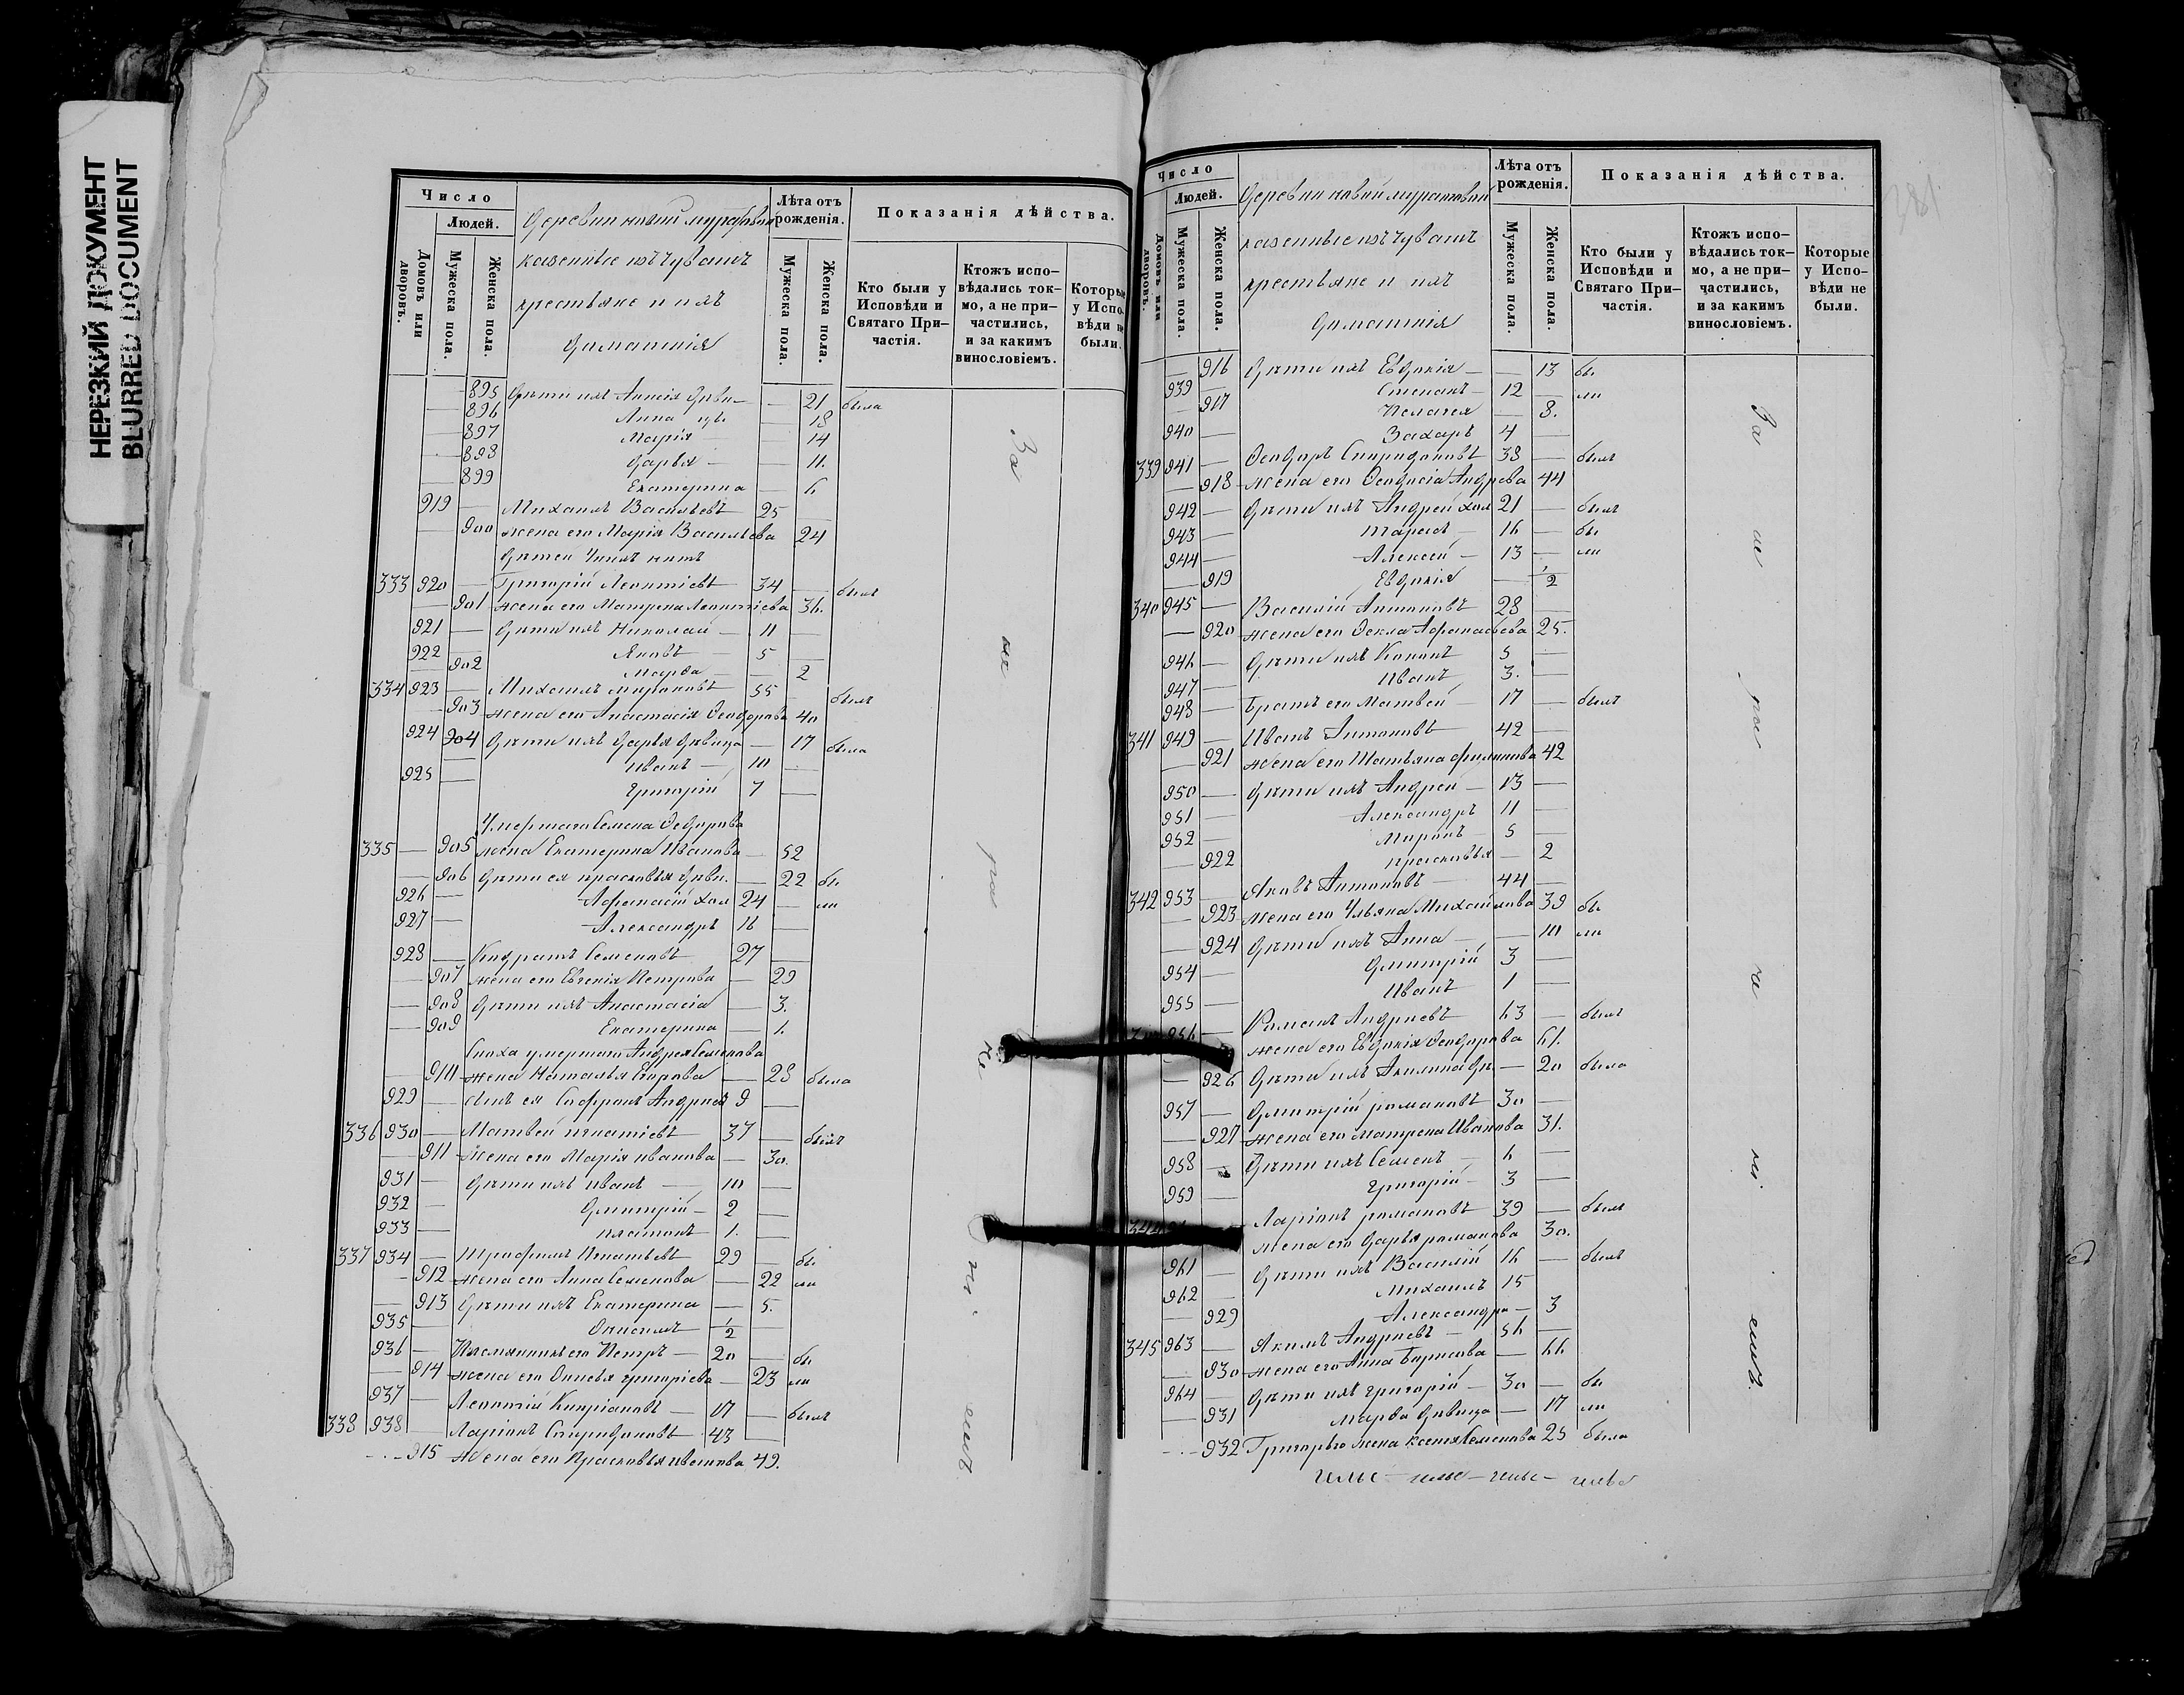 НЕРЕЗКИЙ ДОКУМЕНТ
BLURRED DOCUMENT
Число
Людей.
Домовъ или дворовъ.
Мужеска пола.
Женска пола.
Деревни новой муратовой
казенные изъ чувашъ
крестьяне и ихъ
домашнія
Лѣта отъ рожденія.
Мужеска пола.
Женска пола.
Показанія дѣйства.
Кто были у Исповѣди и Святаго При-
частія.
Ктожъ испо-
вѣдались ток-
мо, а не при-
частились,
и за какимъ
винословіемъ.
Которые
у Испо-
вѣди не
были.
895 Дѣти ихъ Анисія дѣви. — 21 была
896 Анна дѣ. — 18
897 Марія — 14
898 Дарья — 11.
899 Екатерина — 6
919 — Михаилъ Васильевъ 25 —
— 900 жена его Марія Васильева 24
Дѣтей у нихъ нитъ
333 920 — Григорій Леонтіевъ — 34 — былъ
— 901 жена его Матрена Леонтіева 36.
921 — Дѣти ихъ Николай — 11 —
922 — Яковъ — 5 —
— 902 Марфа — 2
334 923 — Михаилъ мироновъ 55 — былъ
— 903 жена его Анастасія Ѳеодорова 40
924 904 Дѣти ихъ Дарья дѣвица — 17 была
— Иванъ — 10 —
925 — Григорій 7 —
Умершаго Семена Ѳеодорова
335 — 905 жена Екатерина Иванова — 52
— 906 Дѣти ея прасковья дѣви. — 22 бы
926 — Афанасій хол 24 — ли
927 — Александръ 16 —
928 — Кодратъ Семеновъ 27 —
— 907 жена его Евгенія Петрова — 29
— 908 Дѣти ихъ Анастасія — 3.
— 909 Екатерина — 1.
Сноха умершаго Андрея Семенова
— 910 жена Наталья Егорова — 28 была
929 — Сынъ ея Софронъ Андреевъ 9 —
336 930 — Матвей игнатіевъ 37 — былъ
— 911 жена его Марія иванова — 30.
931 — Дѣти ихъ иванъ — 10 —
932 — Дмитрій — 2 —
933 — платонъ 1. —
337 934 — Трофимъ Игнатьевъ 29 — бы
— 912 жена его Анна Семенова — 22 ли
— 913 Дѣти ихъ Екатерина — 5.
935 — ½ —
936 — Племянникъ его Петръ — 20 — бы
— 914 жена его григоріева — 23 ли
937 — Леонтій Кипріановъ — 17 — былъ
338 938 — Ларіонъ Спиридоновъ 43 —
— 915 Жена его Прасковья 49.
За не ра че ні емъ
Число
Людей.
Домовъ или дворовъ.
Мужеска пола.
Женска пола.
Деревни новой муратовой
казенные изъ чувашъ
крестьяне и ихъ
домашнія
Лѣта отъ рожденія.
Мужеска пола.
Женска пола.
Показанія дѣйства.
Кто были у
Исповѣди и
Святаго При-
частія.
Ктожъ испо-
вѣдались ток-
мо, а не при-
частились,
и за какимъ
винословіемъ.
Которые
у Испо-
вѣди не
были.
281
— 916 Дѣти ихъ Евдокія — 13 бы
939 — Степанъ — 12 — ли
— 917 Пелагея — 8.
940 — Захаръ 4 —
339 941 — Ѳеодоръ Спиридоновъ 38 — былъ
— 918 жена его Ѳеодосія Андреева 44
942 — Дѣти ихъ Андрей хол 21 — былъ
943 — Тарасъ — 16 — бы
944 — Алексей — 13 — ли
— 919 Евдокія — ½
340 945 — Василій Антоновъ 28 —
— 920 жена его Ѳекла Афанасьева 25.
946 — Дѣти ихъ Кононъ 5 —
947 — Иванъ 3. —
948 — Братъ его Матвей — 17 — былъ
341 949 — Иванъ Антоновъ 42 —
— 921 жена его Татьяна филипова 42
950 — Дѣти ихъ Андрей — 13 —
951 — Александръ 11 —
952 — Миронъ — 5 —
— 922 прасковья — 2
342 953 — Яковъ Антоновъ 44 —
— 923 жена его Ульяна Михайлова 39 бы
— 924 Дѣти ихъ Анна — 10 ли
954 — Дмитрій 3 —
955 — Иванъ 1 —
956 — Романъ Андреевъ 63 — былъ
жена его Евдокія Ѳеодорова 61.
— 926 Дѣти ихъ Акилина дѣ. — 20 была
957 — Дмитрій романовъ 30 —
— 927 жена его Матрена Иванова 31.
958 — Дѣти ихъ Семенъ — 6 —
959 — Григорій — 3 —
344 Ларіонъ романовъ 39 — былъ
жена его Дарья романова 30.
961 — Дѣти ихъ Василій 16 — былъ
962 — Михаилъ 15
— 929 Александра — 3
345 963 — Якимъ Андреевъ — 56 —
— 930 жена его Анна Борисова — 66
964 — Дѣти ихъ григорій — 30 — бы
— 931 Марфа дѣвица — 17 ли
— 932 Григорьева жена ксенья Семенова 25 была
За не ра че ні емъ